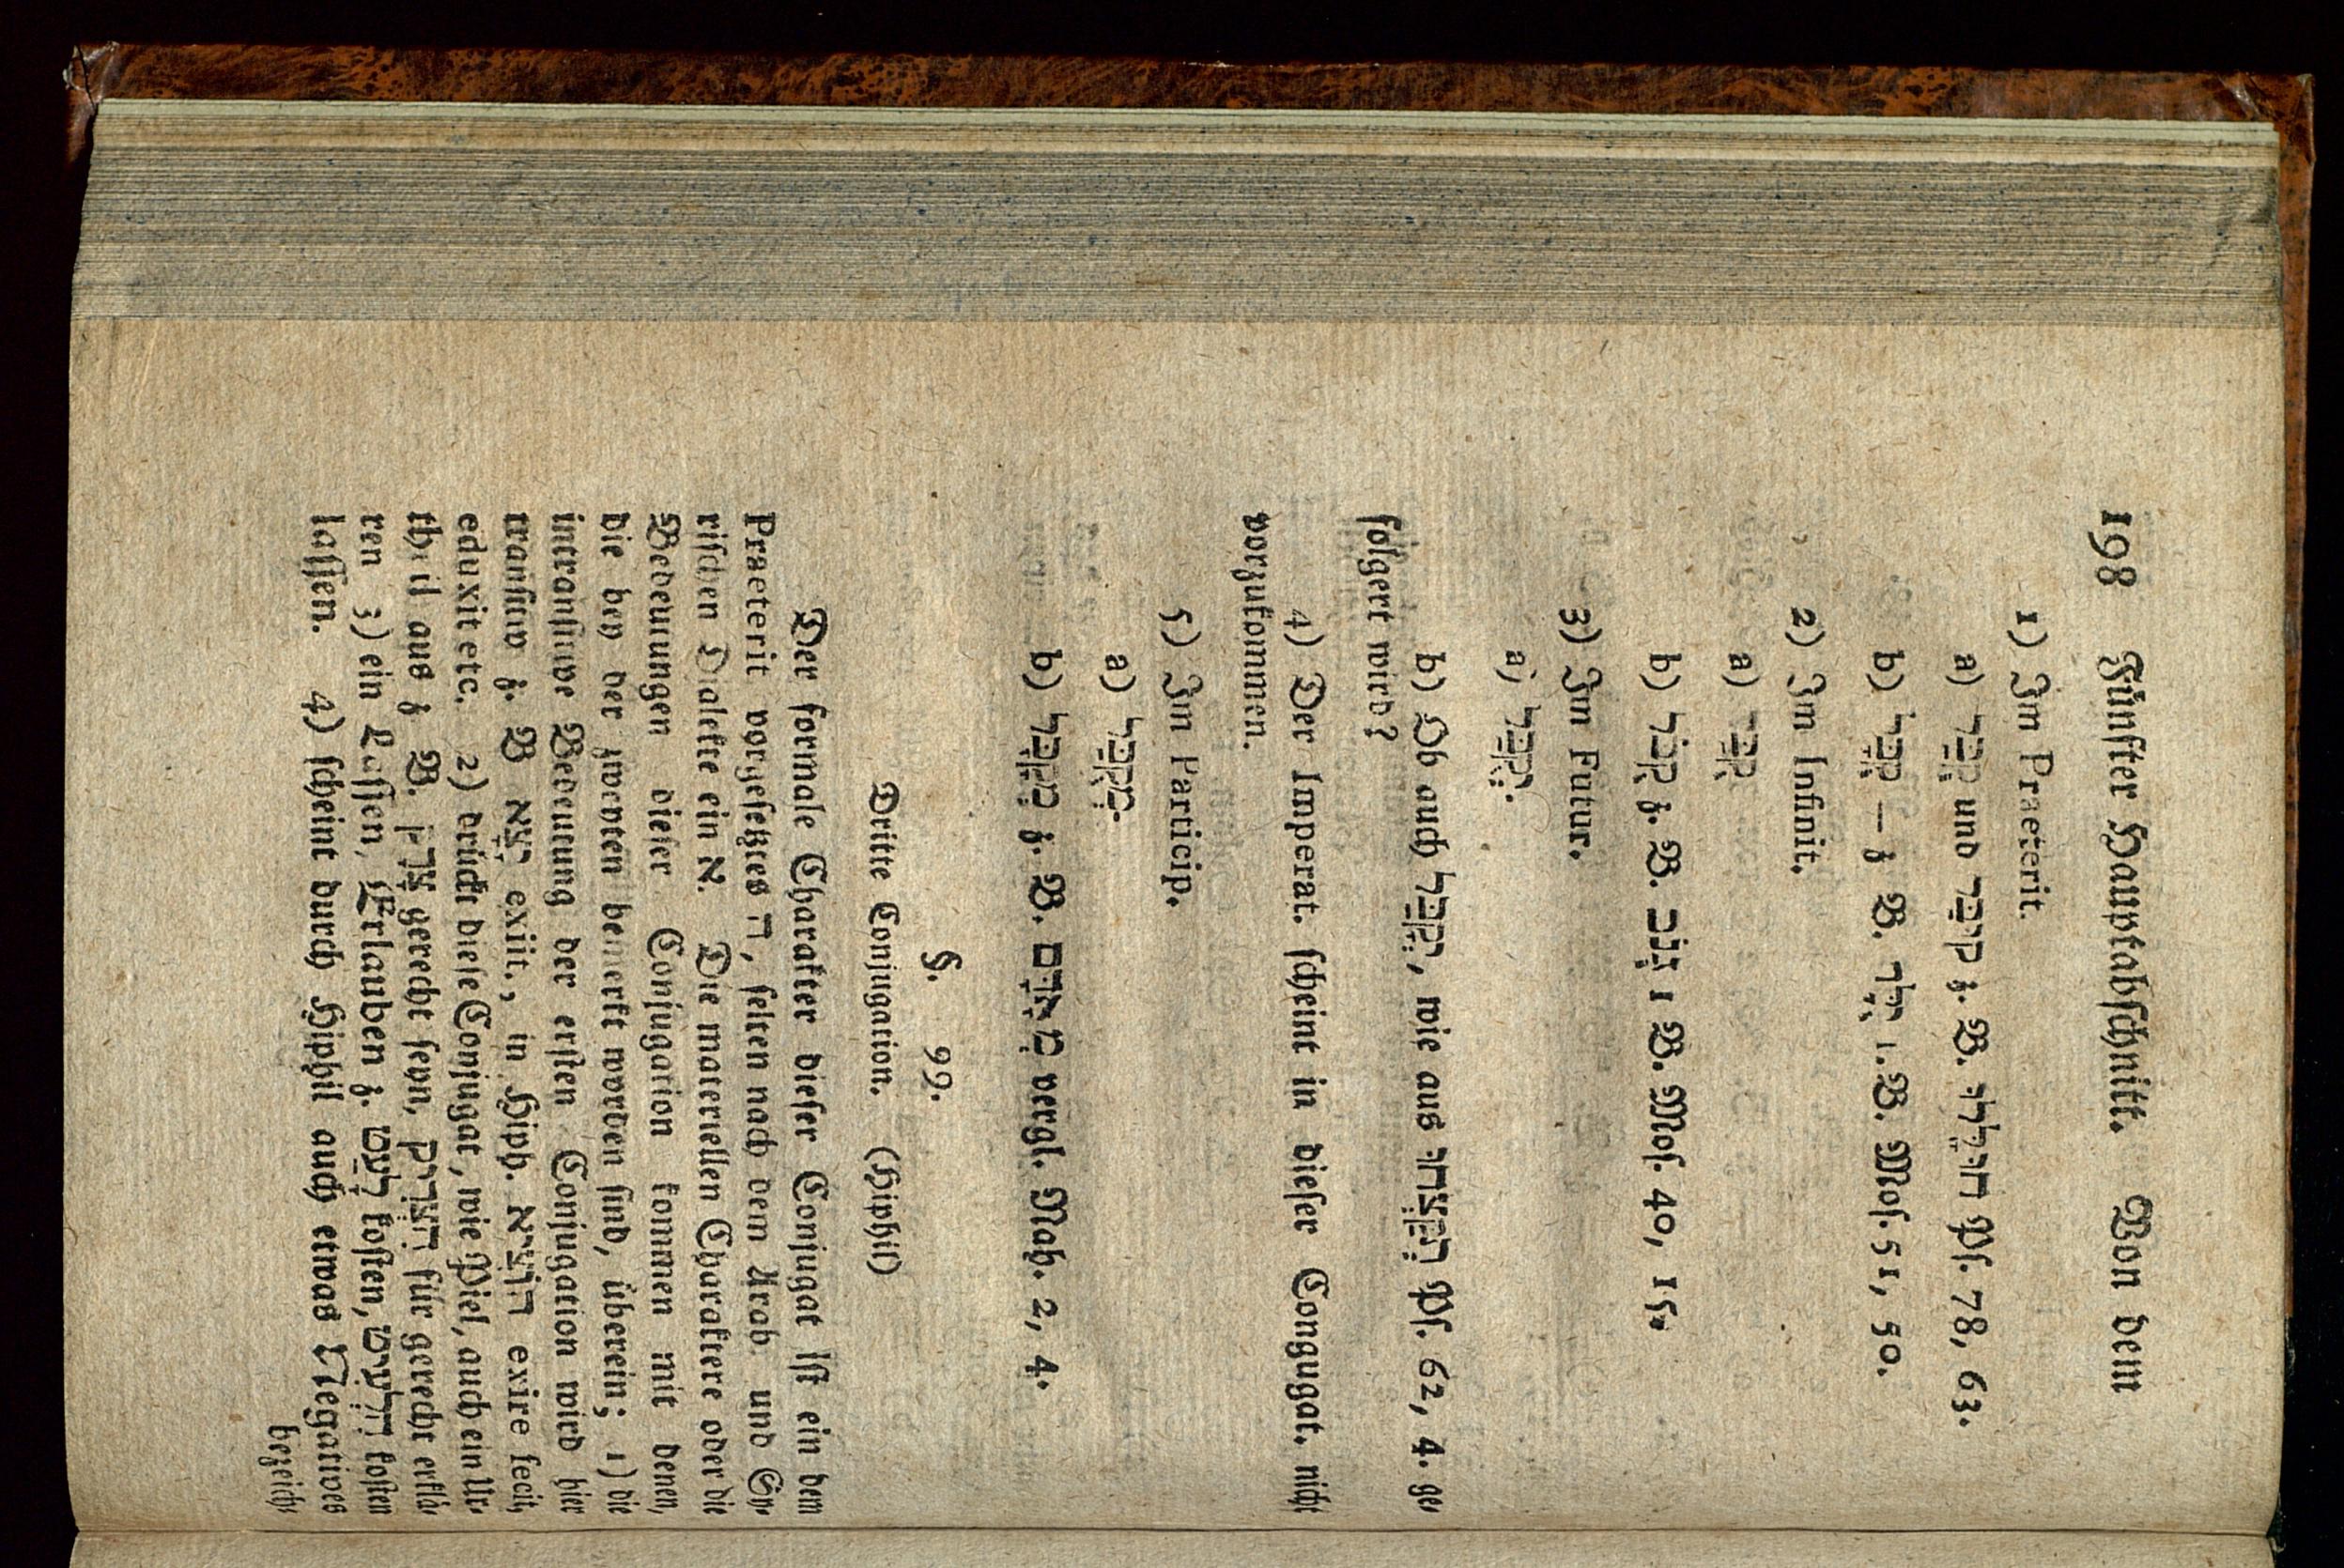 198 Fünfter Hauptabschnitt. Von dem
1) Im Praeterit.
a) קֻבַּר und קוּבַּר z. B. הוּלָּלוּ Ps. 78, 63.
b) קֻבַּר — z B. יֻלַּד 1. B. Mos. 51, 50.
2) Im Infinit.
a) קֻבַּר
b) קֻבֹּר z. B. גֻּנֹּב 1 B. Mos. 40, 15.
3) Im Futur.
a) יְקֻבַּר.
b) Ob auch יְקֻבַּר, wie aus תְּרָצְּחוּ Ps. 62, 4. ge-
folgert wird?
4) Der Imperat. scheint in dieser Congugat. nicht
vorzukommen.
5) Im Particip.
a) מְקֻבָּר.
b) מְקֻבָּר z. B. מְאָדָּם vergl. Nah. 2, 4.
§. 99.
Dritte Conjugation. (Hiphil)
Der formale Charakter dieser Conjugat ist ein dem
Praeterit vorgesetztes ה, selten nach dem Arab. und Sy-
rischen Dialekte ein א. Die materiellen Charaktere oder die
Bedeutungen dieser Conjugation kommen mit denen,
die bey der zweyten bemerkt worden sind, überein; 1) die
intransitive Bedeutung der ersten Conjugation wird hier
transitiv z. B יָצָא exiit, in Hiph. הוֹצִיא exire fecit,
eduxit etc. 2) drückt diese Conjugat, wie Piel, auch ein Ur-
theil aus z B. צָדֵק gerecht seyn, הִצְדִּיק für gerecht erklä-
ren 3) ein Lassen, Erlauben z. טָעַם kosten, הִטְעִים kosten
lassen. 4) scheint durch Hiphil auch etwas Negatives
bezeich-